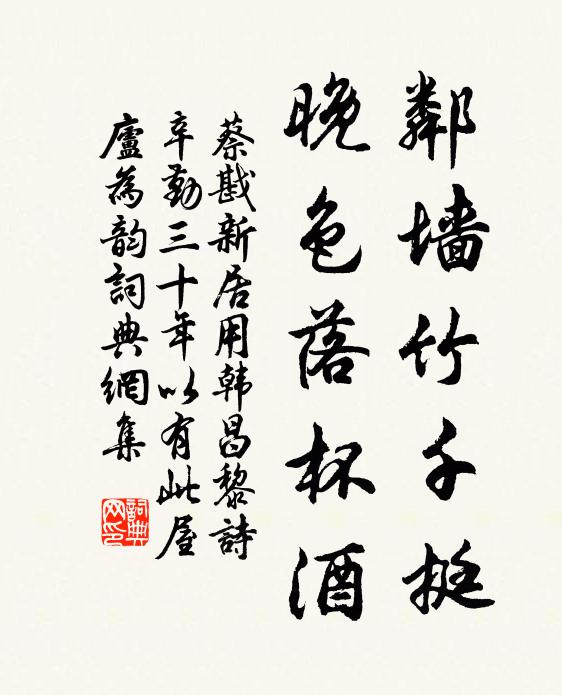 鄰墻竹千挺
晚色落杯酒
蔡戡新居用韓昌黎詩
辛勤三十年以有此屋
廬為韵詞典網集
詞典網印